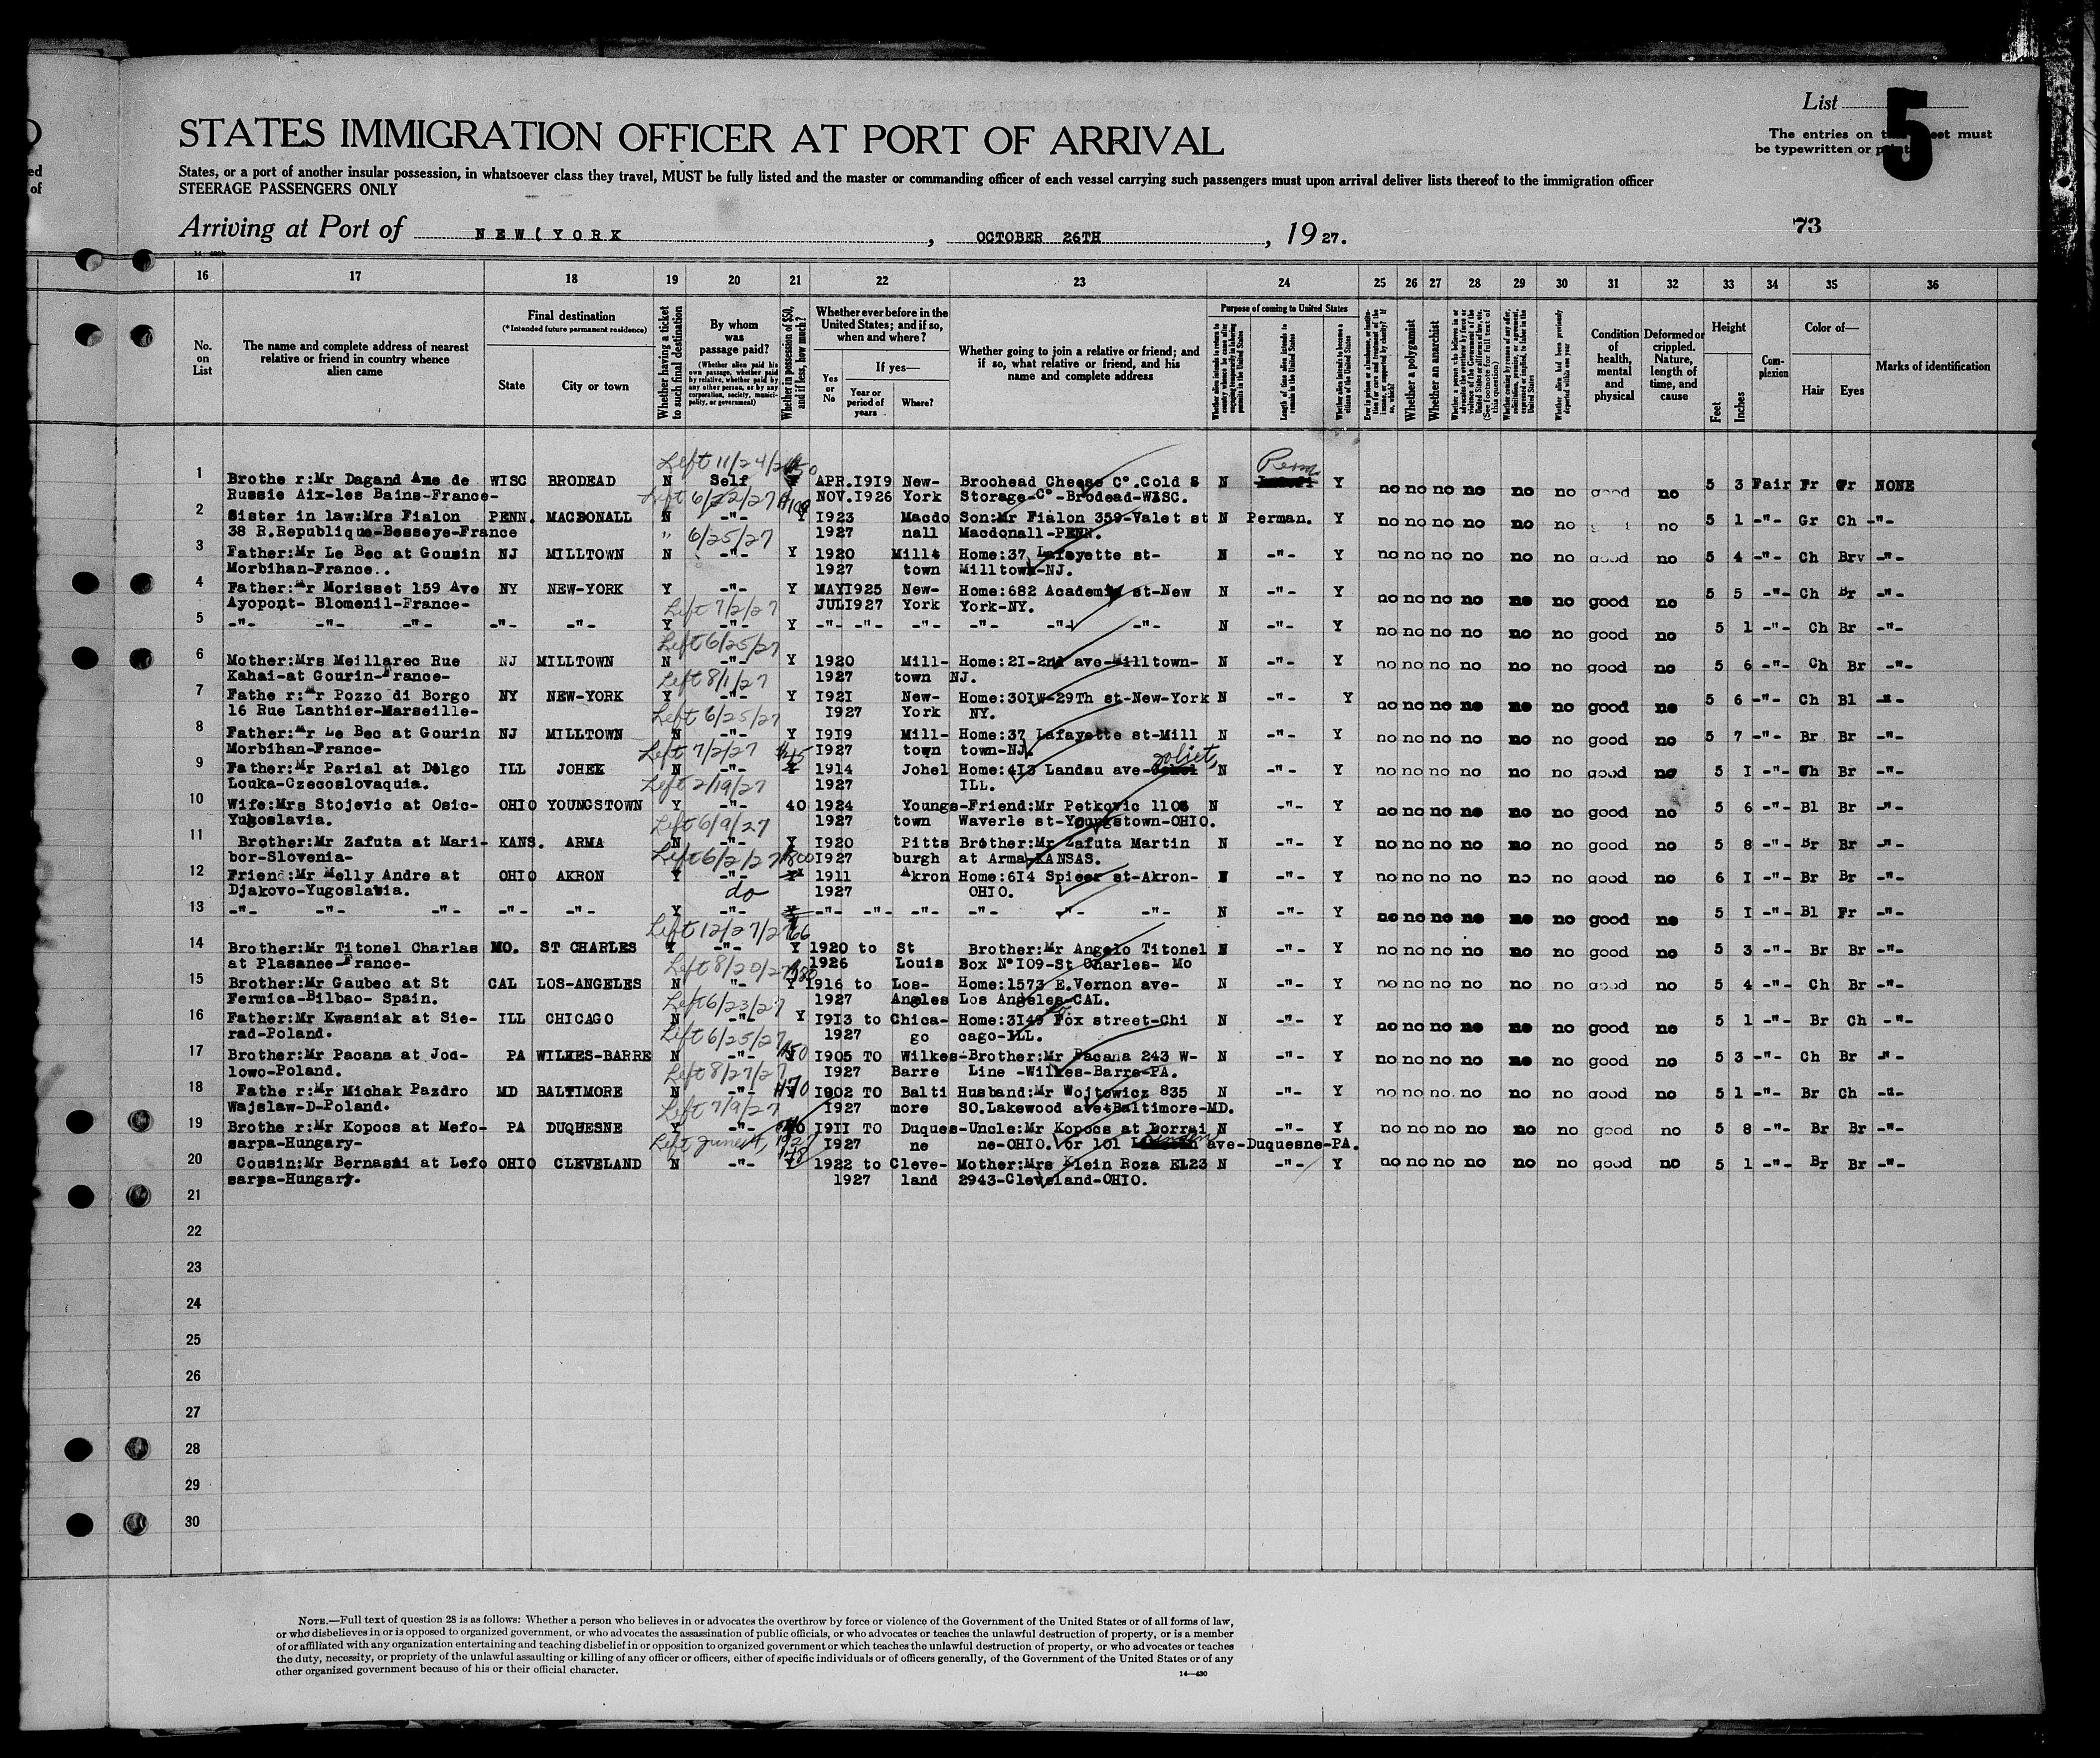 List 5
STATES IMMIGRATION OFFICER AT PORT OF ARRIVAL
The entries on eet must
be typewritten or
States, or a port of another insular possession, in whatsoever class they travel, MUST be fully listed and the master or commanding officer of each vessel carrying such passengers must upon arrival deliver lists thereof to the immigration officer
STEERAGE PASSENGERS ONLY
Arriving at Port of NEW YORK, OCTOBER 26TH, 1927.
73
16 17 18 19 20 21 22 23 24 25 26 27 28 29 30 31 32 33 34 35 36
No. on List
The name and complete address of nearest relative or friend in country whence alien came
Final destination
(*Intended future permanent residence)
State City or town
Whether having a ticket to such final destination
By whom was passage paid?
(Whether alien paid his own passage, whether paid by relative, whether paid by any other person, or by any corporation, society, municipality, or government)
Whether in possession of $50, and if less, how much?
Whether ever before in the United States; and if so, when and where?
Yes or No
If yes—
Year or period of years Where?
Whether going to join a relative or friend; and if so, what relative or friend, and his name and complete address
Purpose of coming to United States
Length of time alien intends to remain in the United States
Whether alien intends to become a citizen of the United States
Whether a polygamist
Whether an anarchist
Condition of health, mental and physical
Deformed or crippled. Nature, length of time, and cause
Height
Feet Inches
Complexion
Color of—
Hair Eyes
Marks of identification
Left 11/24/ 50 Perm
1 Brothe r:Mr Dagand Ame de WISC BRODEAD N Self APR.I9I9 New- Broohead Cheese C°.Cold & N Y no no no no no no good no 5 3 Fair Fr Gr NONE
Russie Aix-les Bains-France- Left 6/22/27 NOV.I926 York Storage-C°-Brodead-WISC.
2 Sister in law:Mrs Fialon PENN. MACDONALL N -"- Y I923 Macdo Son:Mr Fialon 359-Valet st N Perman. Y no no no no no no no 5 1 -"- Gr Ch -"-
38 R.Republique-Besseye-France " 6/25/27 1927 nall Macdonall-PENN.
3 Father:Mr Le Bec at Gousin NJ MILLTOWN N -"- Y 1920 Millt Home:37 Lafayette st- N -"- Y no no no no no no good no 5 4 -"- Ch Brv -"-
Morbihan-France.. 1927 town Milltown-NJ.
4 Father:Mr Morisset 159 Ave NY NEW-YORK Y -"- Y MAYI925 New- Home:682 Academy st-New N -"- Y no no no no no no good no 5 5 -"- Ch Br -"-
Ayopont- Blomenil-France- Left 7/2/27 JULI927 York York-NY.
5 -"- -"- -"- -"- -"- Y -"- Y -"- -"- -"- -"- -"- -"- N -"- Y no no no no no no good no 5 1 -"- Ch Br -"-
Left 6/25/27
6 Mother:Mrs Meillarec Rue NJ MILLTOWN N -"- Y 1920 Mill- Home:2I-2nd ave-Milltown- N -"- Y no no no no no no good no 5 6 -"- Ch Br -"-
Kahai-at Gourin-France- Left 8/1/27 1927 town NJ.
7 Fathe r:Mr Pozzo di Borgo NY NEW-YORK Y -"- Y I92I New- Home:30IW-29Th st-New-York N -"- Y no no no no no no good no 5 6 -"- Ch Bl -"-
16 Rue Lanthier-Marseille- Left 6/25/27 I927 York NY.
8 Father:Mr Le Bec at Gourin NJ MILLTOWN N -"- Y I9I9 Mill- Home:37 Lafayette st-Mill N -"- Y no no no no no no good no 5 7 -"- Br Br -"-
Morbihan-France- Left 7/2/27 $45 I927 town town-NJ. Joliet,
9 Father:Mr Parial at Dolgo ILL JOHEK N -"- 1914 Johel Home:4I3 Landau ave- N -"- Y no no no no no no good no 5 I -"- Ch Br -"-
Louka-Czecoslovaquia. Left 2/19/27 1927 ILL.
10 Wife:Mrs Stojevic at Osic- OHIO YOUNGSTOWN Y -"- 40 1924 Youngs-Friend:Mr Petkovic 1108 N -"- Y no no no no no no good no 5 6 -"- Bl Br -"-
Yugoslavia. Left 6/9/27 1927 town Waverle st-Youngstown-OHIO.
11 Brother:Mr Zafuta at Mari- KANS. ARMA N -"- Y I920 Pitts Brother:Mr Zafuta Martin N -"- Y no no no no no no good no 5 8 -"- Br Br -"-
bor-Slovenia- Left 6/2/27 I927 burgh at Arma-KANSAS.
12 Friend:Mr Melly Andre at OHIO AKRON Y -"- 1911 Akron Home:6I4 Spicer st-Akron- N -"- Y no no no no no no good no 6 I -"- Br Br -"-
Djakovo-Yugoslavia. do 1927 OHIO.
13 -"- -"- -"- -"- -"- Y -"- -"- -"- -"- -"- -"- -"- N -"- Y no no no no no no good no 5 I -"- Bl Fr -"-
Left 12/27/ 66
14 Brother:Mr Titonel Charlas MO. ST CHARLES Y -"- Y 1920 to St Brother:Mr Angelo Titonel N -"- Y no no no no no no good no 5 3 -"- Br Br -"-
at Plasanee-France- Left 8/20/27 1926 Louis Box N°I09-St Charles- Mo
15 Brother:Mr Gaubec at St CAL LOS-ANGELES N "- Y I916 to Los- Home:1573 E.Vernon ave- N -"- Y no no no no no no good no 5 4 -"- Ch Br -"-
Fermica-Bilbao- Spain. Left 6/23/27 1927 Angles Los Angeles-CAL.
16 Father:Mr Kwasniak at Sie- ILL CHICAGO N -"- Y I9I3 to Chica- Home:3I49 Fox street-Chi N -"- Y no no no no no no good no 5 1 -"- Br Ch -"-
rad-Poland. Left 6/25/27 1927 go cago-ILL.
17 Brother:Mr Pacana at Jod- PA WILKES-BARRE N -"- I905 TO Wilkes-Brother:Mr Pacana 243 W- N -"- Y no no no no no no good no 5 3 -"- Ch Br -"-
lowo-Poland. Left 8/27/27 I927 Barre Line -Wilkes-Barre-PA.
18 Fathe r:Mr Michak Pazdro MD BALTIMORE N -"- #70 I902 TO Balti Husband:Mr Wojtowicz 835 N -"- Y no no no no no no good no 5 1 -"- Br Ch -"-
Wajslaw-D-Poland. Left 7/9/27 I927 more SO.Lakewood ave+Baltimore-MD.
19 Brothe r:Mr Kopocs at Mefo- PA DUQUESNE Y -"- I9II TO Duques-Uncle:Mr Kopocs at Lorrai N -"- Y no no no no no no good no 5 8 -"- Br Br -"-
sarpa-Hungary- Left June 4, 1927 I927 ne ne-OHIO. or 101 Linden ave-Duquesne-PA.
20 Cousin:Mr Bernasni at Lefo OHIO CLEVELAND N -"- Y 1922 to Cleve- Mother:Mrs Klein Roza EL23 N -"- Y no no no no no no good no 5 1 -"- Br Br -"-
sarpa-Hungary. 1927 land 2943-Cleveland-OHIO.
21
22
23
24
25
26
27
28
29
30
NOTE.—Full text of question 28 is as follows: Whether a person who believes in or advocates the overthrow by force or violence of the Government of the United States or of all forms of law,
or who disbelieves in or is opposed to organized government, or who advocates the assassination of public officials, or who advocates or teaches the unlawful destruction of property, or is a member
of or affiliated with any organization entertaining and teaching disbelief in or opposition to organized government or which teaches the unlawful destruction of property, or who advocates or teaches
the duty, necessity, or propriety of the unlawful assaulting or killing of any officer or officers, either of specific individuals or of officers generally, of the Government of the United States or of any
other organized government because of his or their official character.
14—430